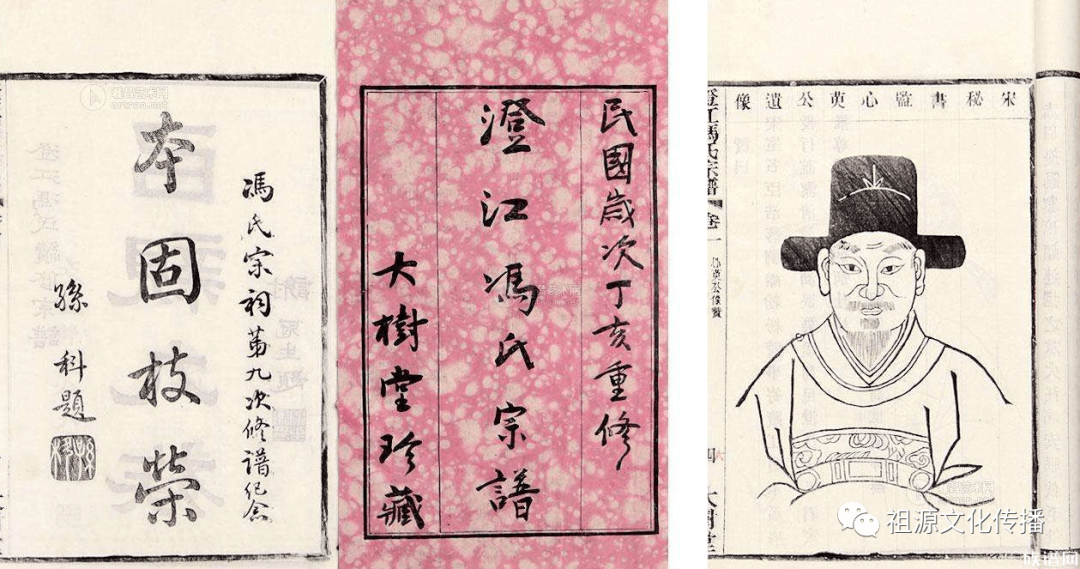 馮氏宗祠第九次修譜纪念
本固枝榮
孫科題
民國歲次丁亥重修
澄江馮氏宗譜
大樹堂珍藏
宋秘書監心萸公遺像
澄江馮氏宗譜
卷一
雅昌艺术网
artron.net
祖源文化传播
族谱网